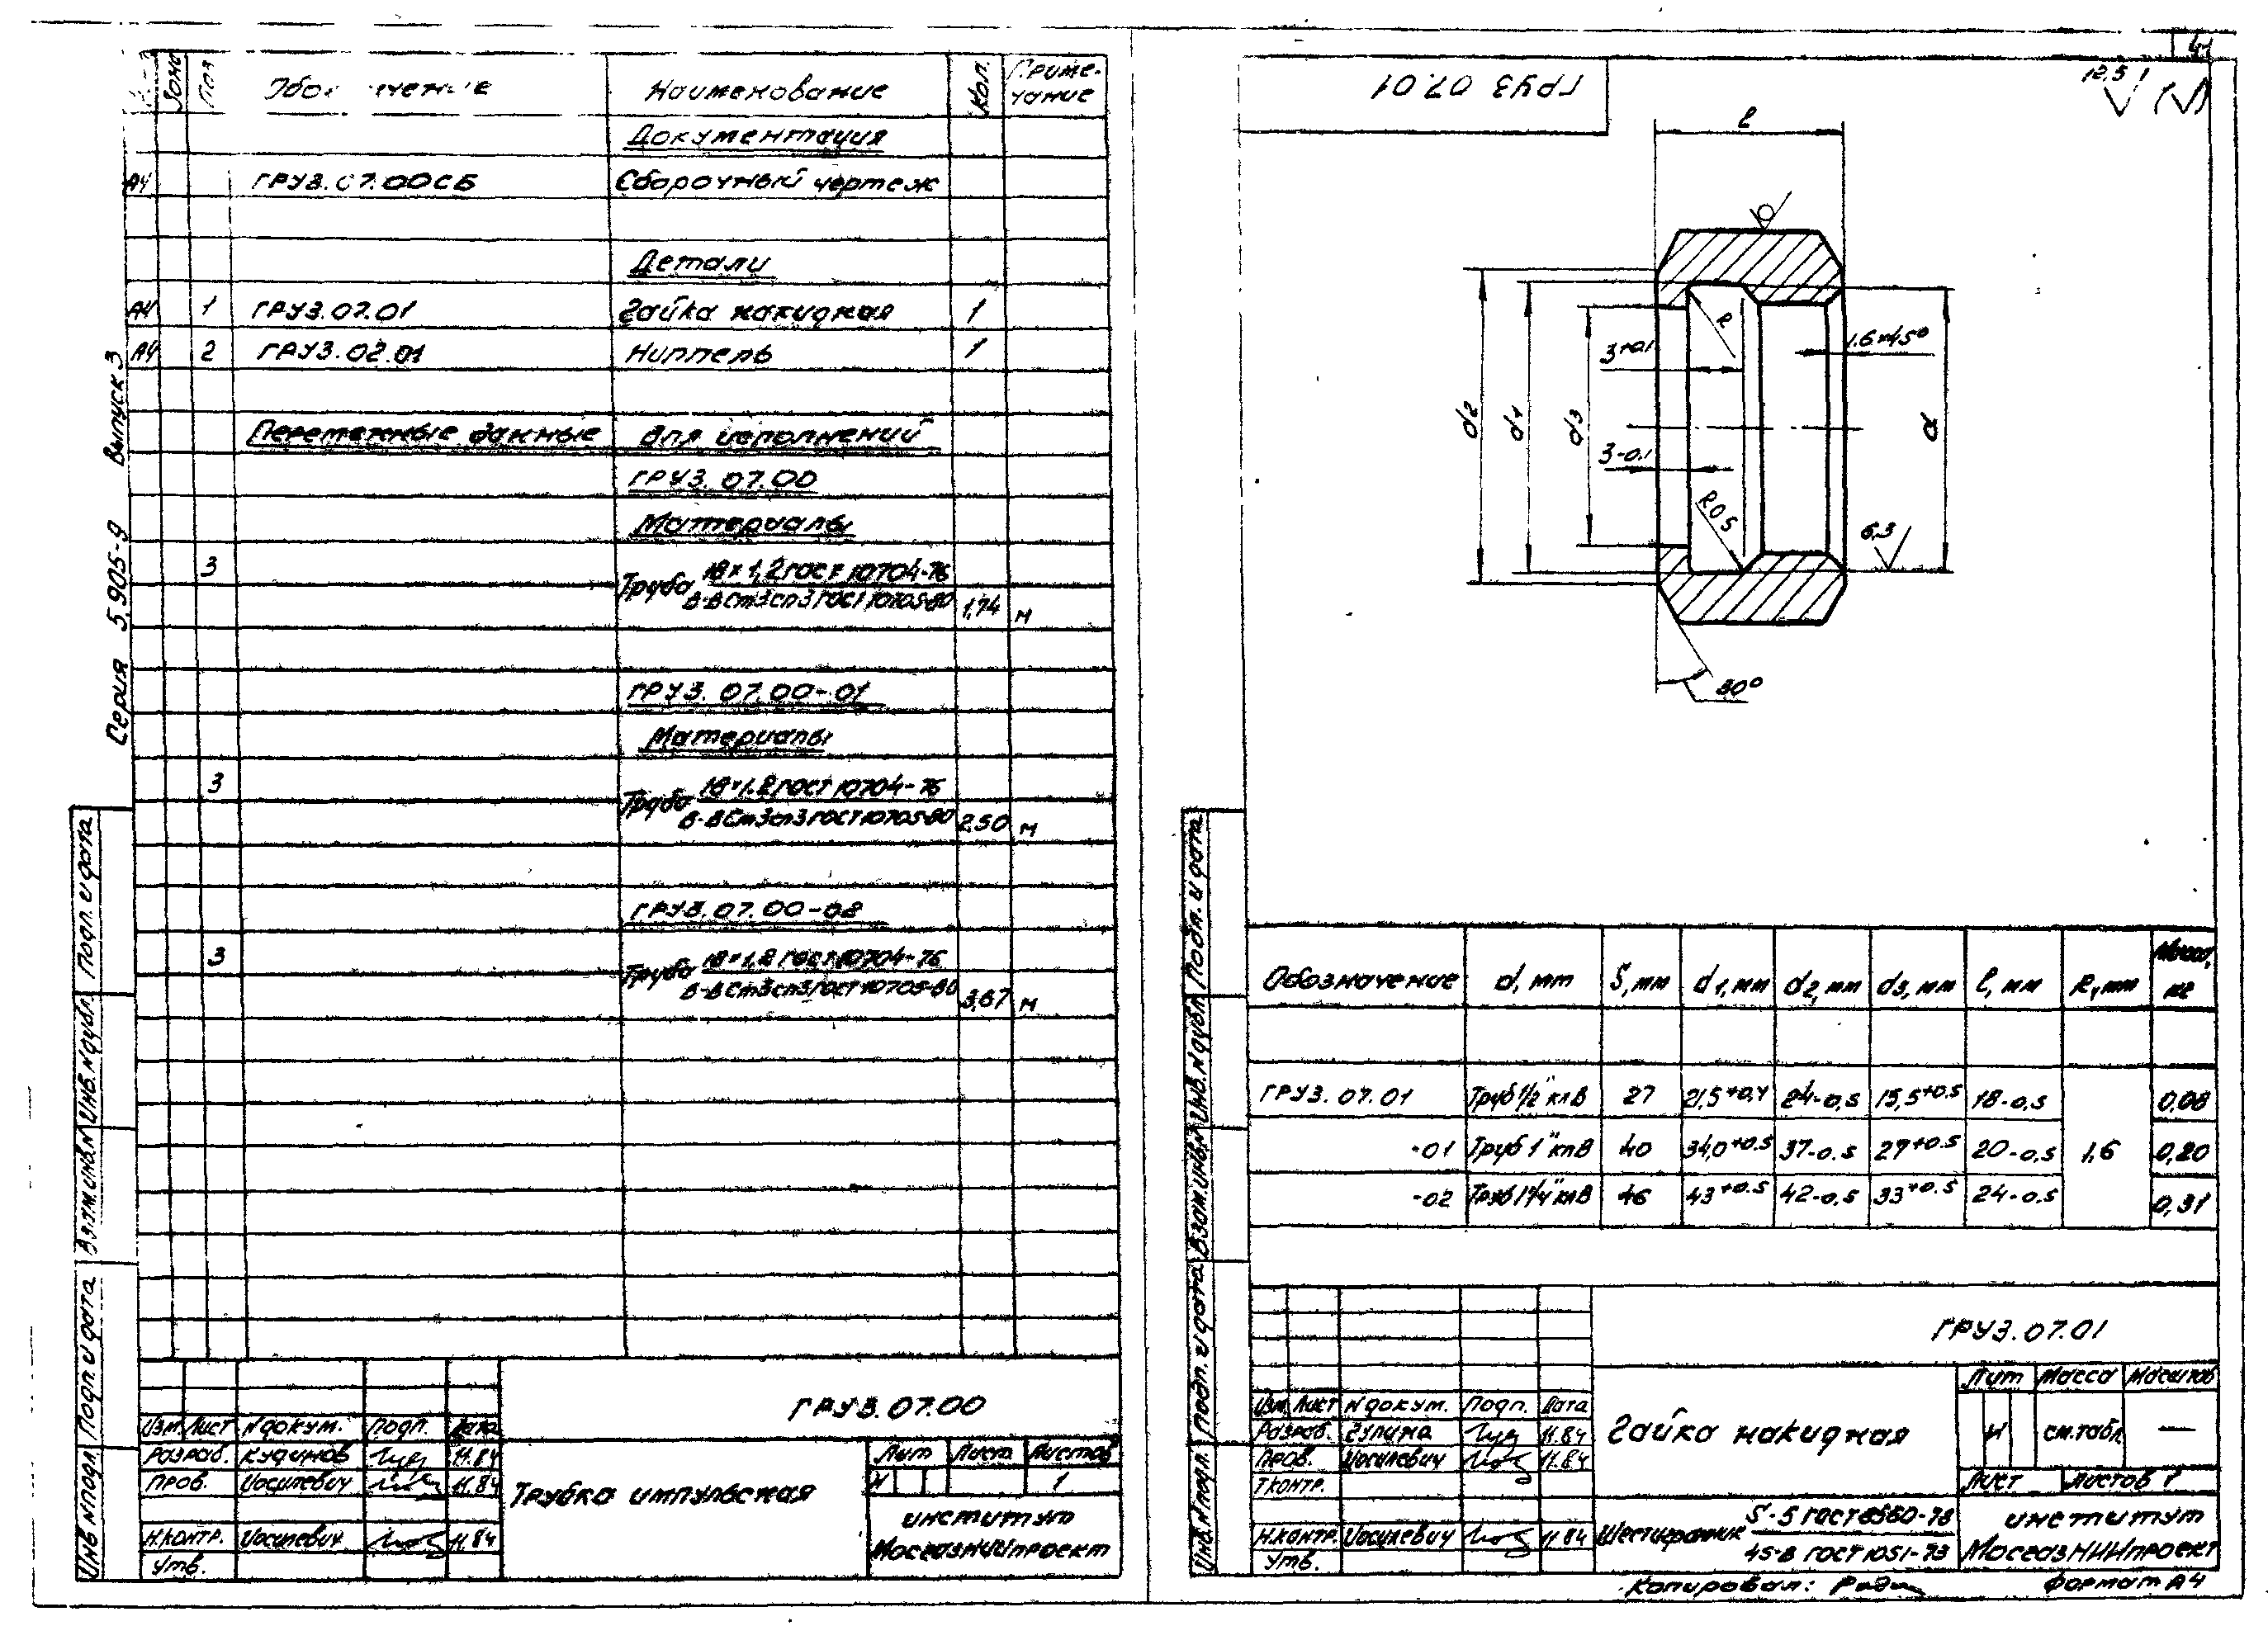 41
Серия 5.905-9 Выпуск 3
Зона Поз Наименование Кол. Приме-
чание
Документация
А4 ГРУЗ.07.00СБ Сборочный чертеж
Детали
А4 1 ГРУЗ.07.01 Гайка накидная 1
А4 2 ГРУЗ.02.01 Ниппель 1
Переменные данные для исполнений
ГРУЗ.07.00
Материалы
3 Труба 18×1,2 ГОСТ 10704-76
В-ВСт3сп3 ГОСТ 10705-80 1,74 м
ГРУЗ.07.00-01
Материалы
3 Труба 18×1.2 ГОСТ 10704-76
В-ВСт3сп3 ГОСТ 10705-80 2,50 м
ГРУЗ.07.00-02
3 Труба 18×1,2 ГОСТ 10704-76
В-ВСт3сп3 ГОСТ 10705-80 3,67 м
Инв № подл. Подп. и дата Взам.инв.№ Инв.№ дубл. Подп. и дата
ГРУЗ.07.00
Изм. Лист № докум. Подп. Дата
Разраб. Кудинов 11.84
Пров. Иосилевич 11.84
Н.контр. Иосилевич 11.84
Утв.
Трубка импульсная
Лит Лист Листов
И 1
институт
МосгазНИИпроект
ГРУЗ 07.01
12,5 (√)
l
d2 d1 d3 d
R
3+0,1
1.6×45°
3-0,1
R0.5
6,3
30°
Обозначение d, мм S, мм d1, мм d2, мм d3, мм l, мм R, мм Масса, кг
ГРУЗ.07.01 Труб 1/2" кл В 27 21,5+0,4 24-0,5 15,5+0.5 18-0,5 0,08
-01 Труб 1" кл В 40 34,0+0.5 37-0.5 27+0.5 20-0,5 1,6 0,20
-02 Труб 1 1/4" кл В 46 43+0.5 42-0,5 33+0.5 24-0.5 0,31
Инв.№ подл. Подп. и дата Взам.инв.№ Инв.№ дубл. Подп. и дата
ГРУЗ.07.01
Изм. Лист № докум. Подп. Дата
Разраб. Гулина 11.84
Пров. Иосилевич 11.84
Т.контр.
Н.контр. Иосилевич 11.84
Утв.
Гайка накидная
Лит Масса Масштаб
И см.табл. —
Лист Листов 1
Шестигранник S-5 ГОСТ 8560-78
45-В ГОСТ 1051-73
институт
МосгазНИИпроект
Копировал: Формат А4